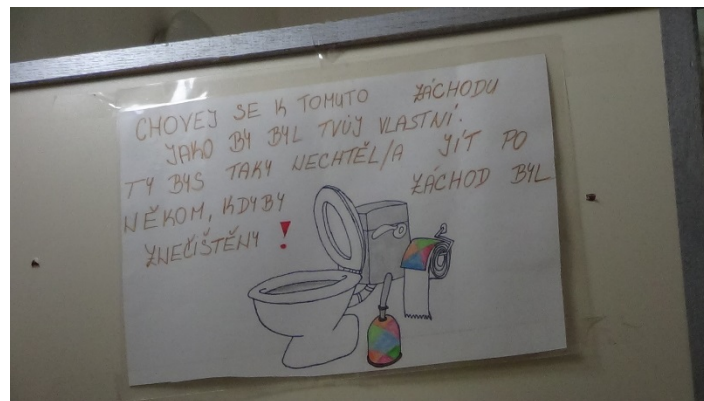 CHOVEJ SE K TOMUTO ZÁCHODU
JAKO BY BYL TVŮJ VLASTNÍ.
TY BYS TAKY NECHTĚL/A JÍT PO
NĚKOM, KDYBY ZÁCHOD BYL
ZNEČIŠTĚNY!